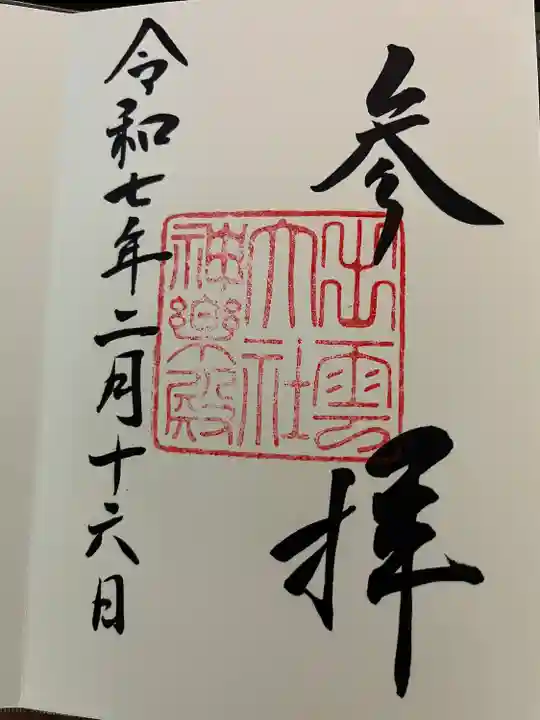 参拝
出雲
大社
神楽殿
令和七年二月十六日